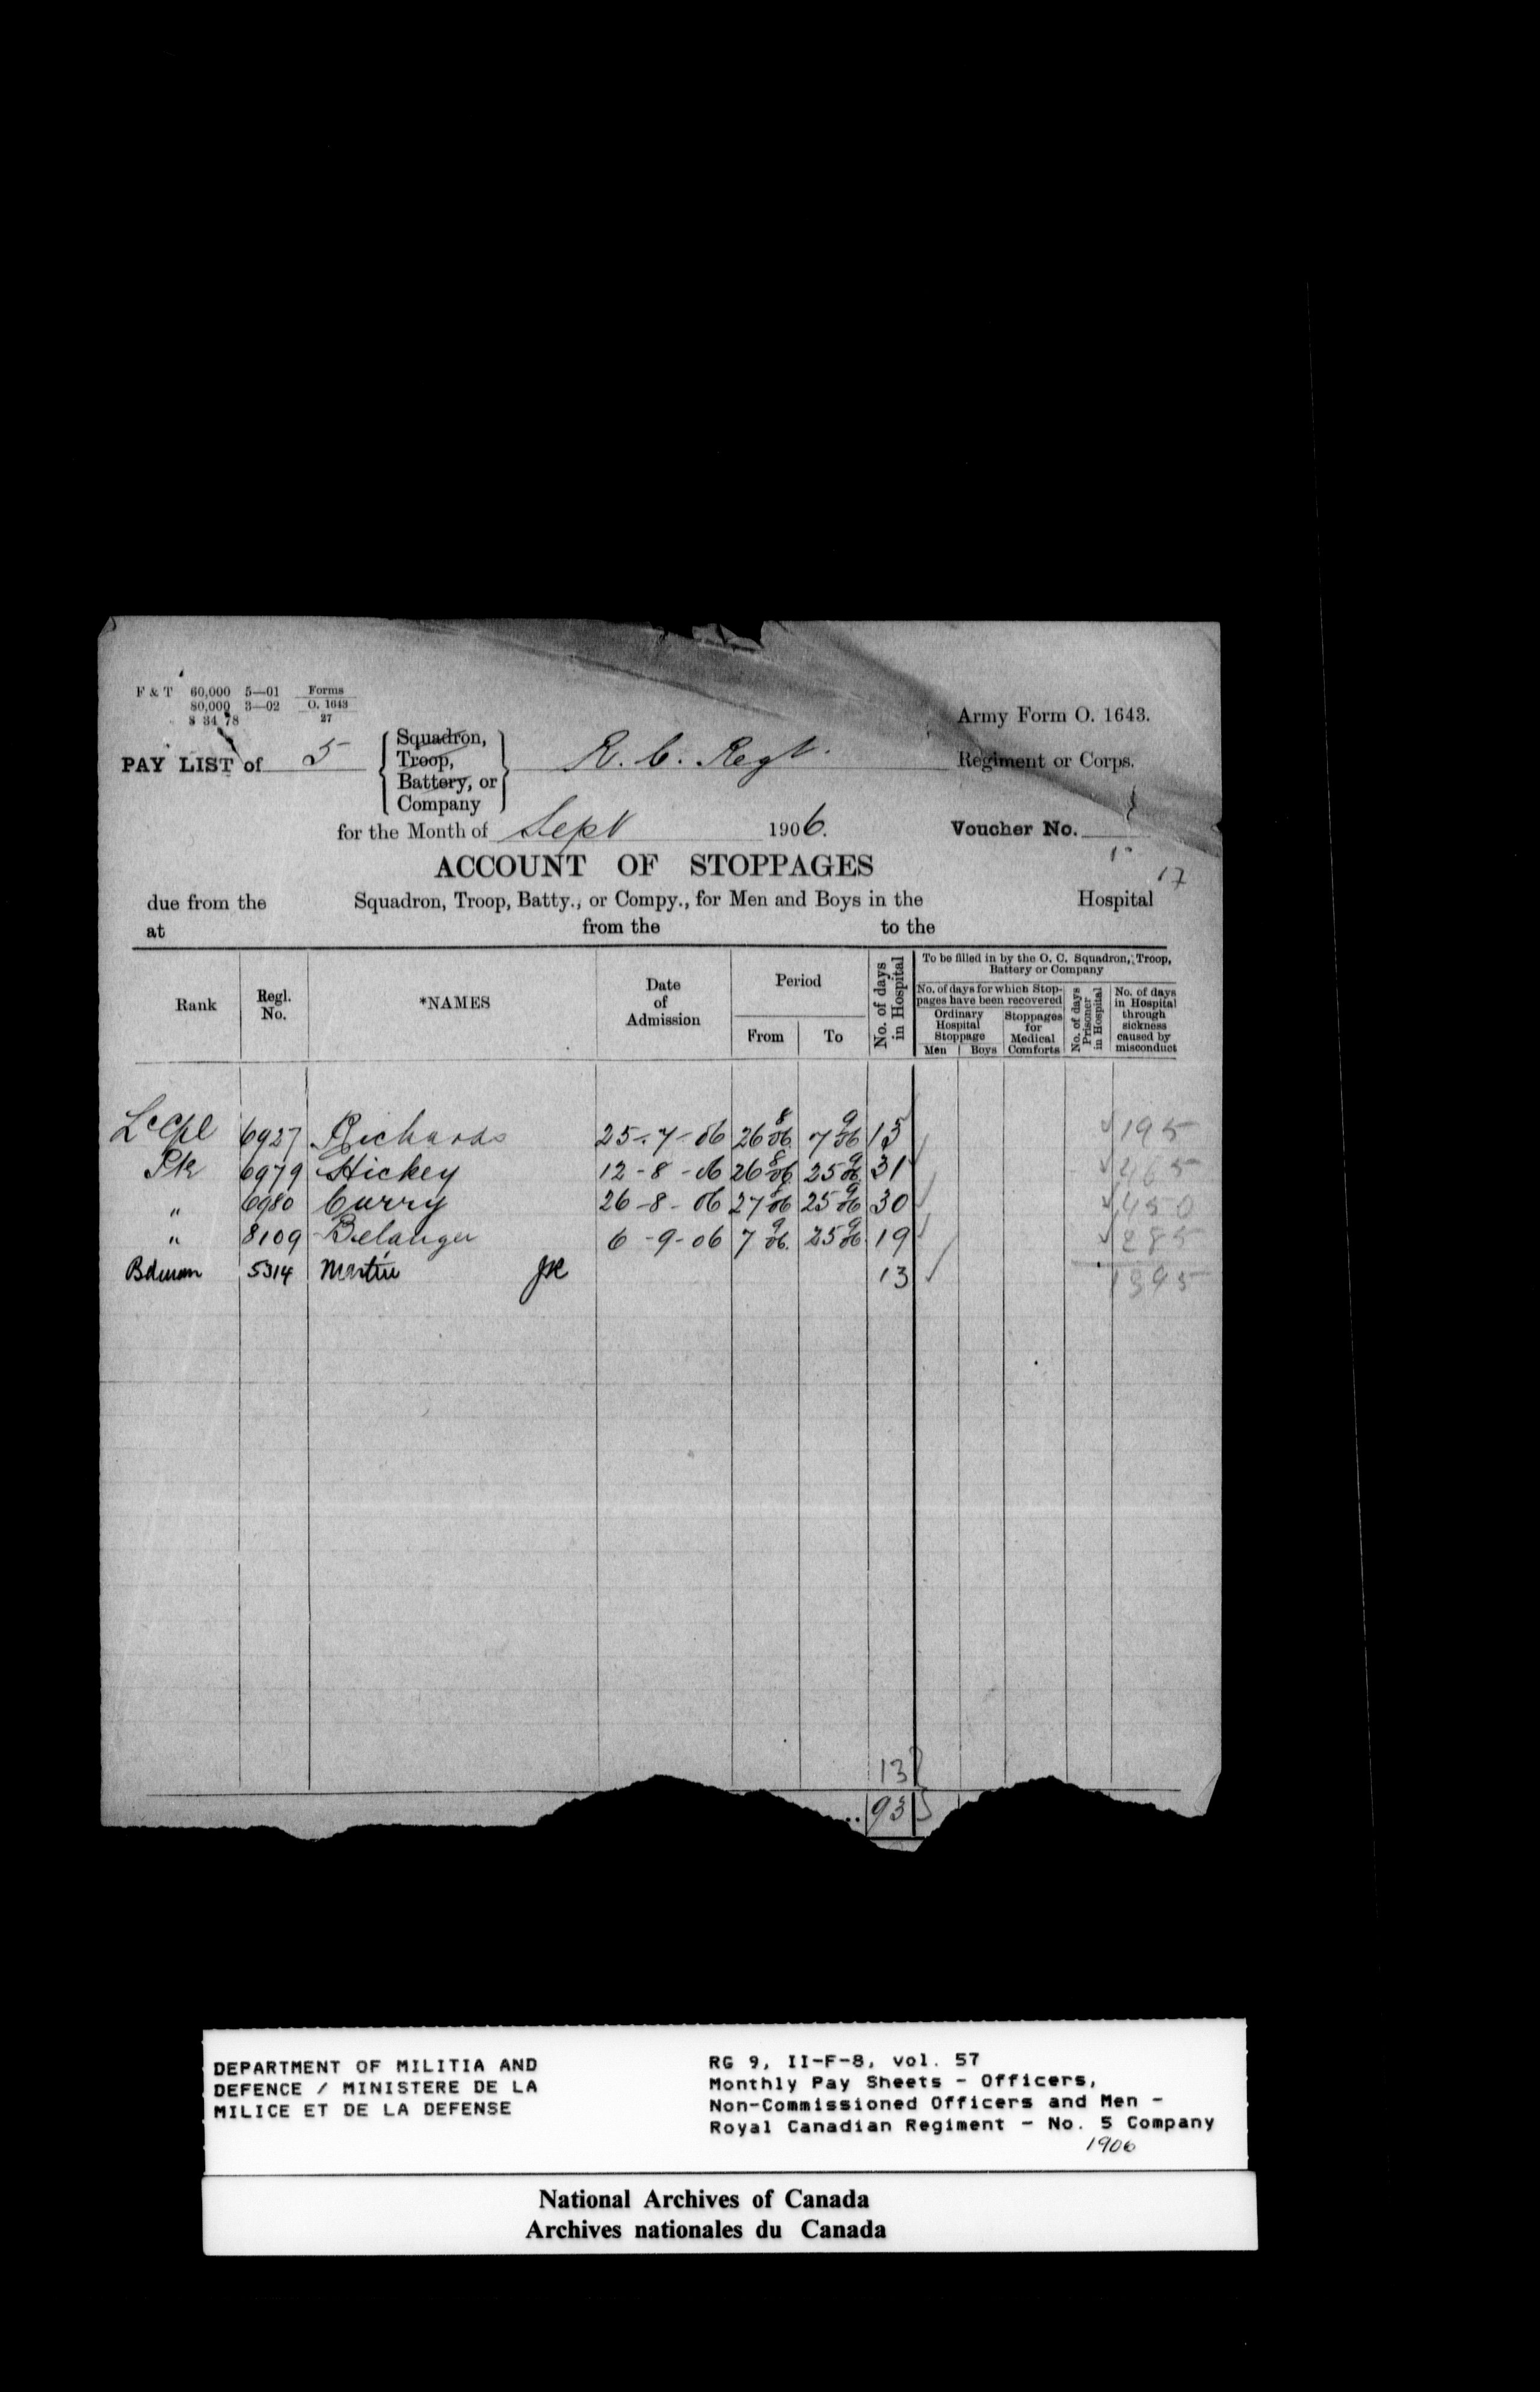 F & T 60,000 5—01 Forms
80,000 3—02 O. 1643
S 34 78 27
Army Form O. 1643.
PAY LIST of 5 { Squadron, Troop, Battery, or Company } R. C. Regt. Regiment or Corps.
for the Month of Sept 1906. Voucher No.
17
ACCOUNT OF STOPPAGES
due from the Squadron, Troop, Batty., or Compy., for Men and Boys in the Hospital
at from the to the
Rank
Regl. No.
*NAMES
Date of Admission
Period
From To
No. of days in Hospital
To be filled in by the O. C. Squadron, Troop, Battery or Company
No. of days for which Stoppages have been recovered
Ordinary Hospital Stoppage
Men Boys
Stoppages for Medical Comforts
No. of days Prisoner in Hospital
No. of days in Hospital through sickness caused by misconduct
Lc Cpl 6927 Richards 25-7-06 26 8/06 7 9/06 13 195
Pte 6979 Hickey 12-8-06 26 8/06 25 9/06 31 465
" 6980 Curry 26-8-06 27 8/06 25 9/06 30 450
" 8109 Belanger 6-9-06 7 9/06 25 9/06 19 285
Bdman 5314 Martin 13 1395
13
93
DEPARTMENT OF MILITIA AND
DEFENCE / MINISTERE DE LA
MILICE ET DE LA DEFENSE
RG 9, II-F-8, vol. 57
Monthly Pay Sheets - Officers,
Non-Commissioned Officers and Men -
Royal Canadian Regiment - No. 5 Company
1906
National Archives of Canada
Archives nationales du Canada